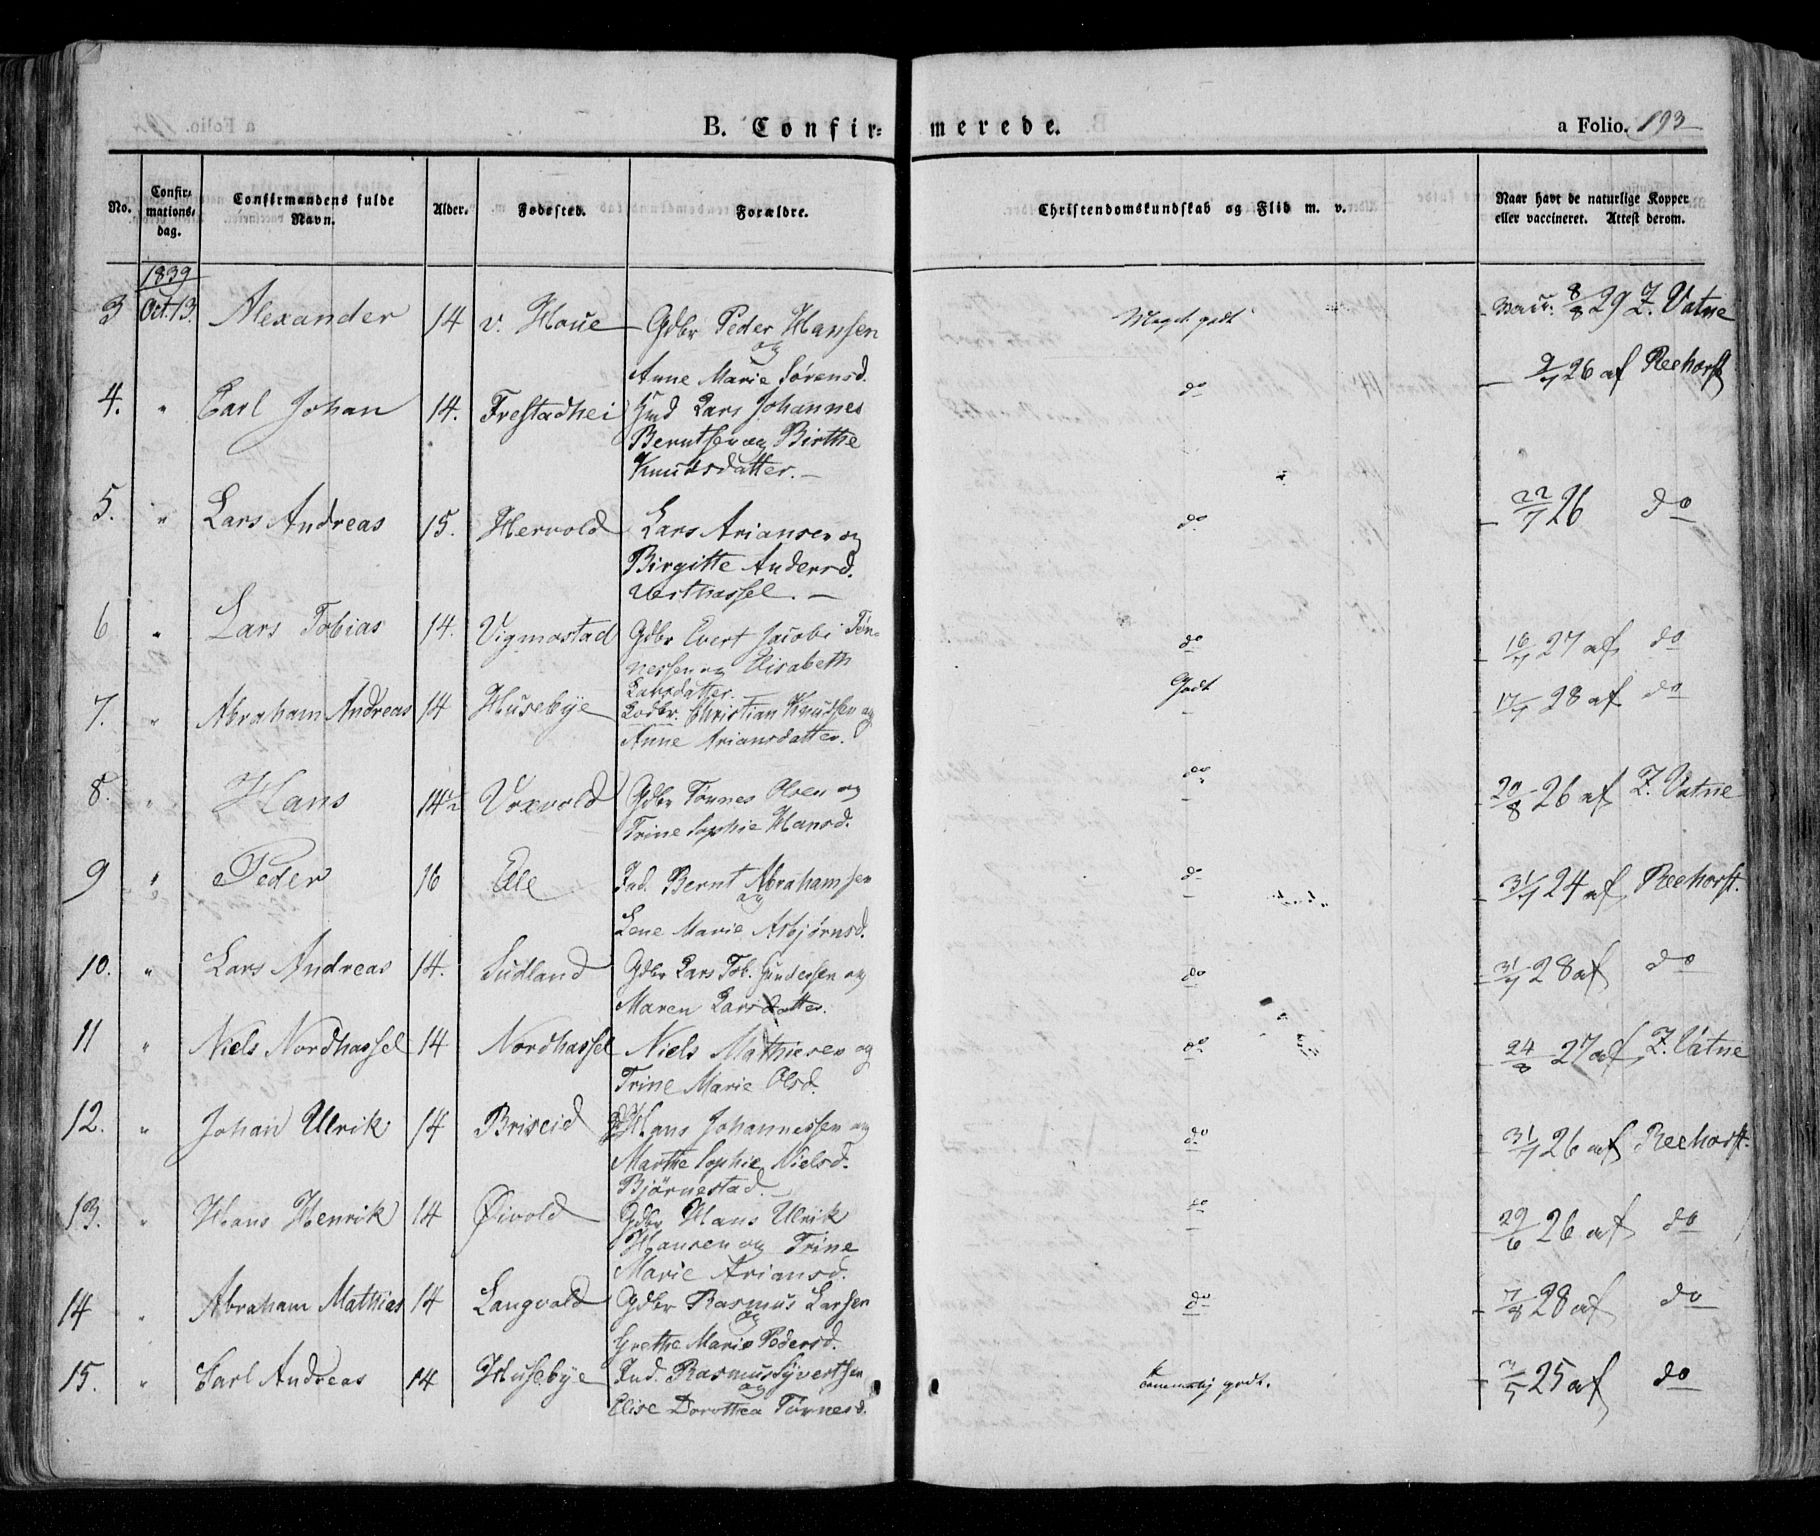 B. Confirmerede.
a Folio. 193
No. Confirmationsdag. Confirmandens fulde Navn. Alder. Fødested. Forældre. Christendomskundskab og Flid m. v. Naar havt de naturlige Kopper eller vaccineret. Attest derom.
1839
3 Oct. 13. Alexander 14 v. Houe Gdbr Peder Hansen Meget godt 8/8 29 Z. Vatne
og
Anne Marie Sørensd.
4. " Carl Johan 14. Frestadhei Lars Johannes do 9/7 26 af Reehorst
Berntsen og Birthe
Knudsdatter. —
5. " Lars Andreas 15. Hervold Lars Ariansen og do 22/7 26 do
Birgitte Andersd.
Vesthassel. —
6 " Lars Tobias 14. Vigmostad Gdbr Evert Jacobi Tøn- do 16/7 27 af do
nessen og Elisabeth
Larsdatter.
7. " Abraham Andreas 14 Husebye Christian Knudsen og Godt 17/7 28 af do
Anne Ariansdatter.
8. " Hans 14½ Voxvold Gdbr Tønnes Olsen og do 20/8 26 af Z. Vatne
Trine Sophie Hansd.
9 " Peder 16 Ind. Bernt Abrahamsen do 31/7 24 af Reehorst.
og
Lene Marie Asbjørnsd.
10. " Lars Andreas 14. Sudland Gdbr Lars Tob. Gundersen og do 31/7 28 af do
Maren Larsdatter.
11 " Niels Nordhassel 14 Nordhassel Niels Mathiesen og do 24/8 27 af Z. Vatne
Trine Marie Olsd.
12. " Johan Ulrik 14 Briseid Hans Johannessen og do 31/7 26 af Reehorst.
Marthe Sophie Nielsd.
Bjørnestad. —
13. " Hans Henrik 14 Øivold Gdbr Hans Ulrik do 29/6 26 af do
Hansen og Trine
Marie Ariansd.
14 " Abraham Mathias 14 Langvold Gdbr Rasmus Larsen do 7/8 28 af do
og
Grethe Marie Pedersd.
15. " Carl Andreas 14 Husebye Ind. Rasmus Syvertsen godt. 25 af do
og
Elise Dorothea Tønnesd.